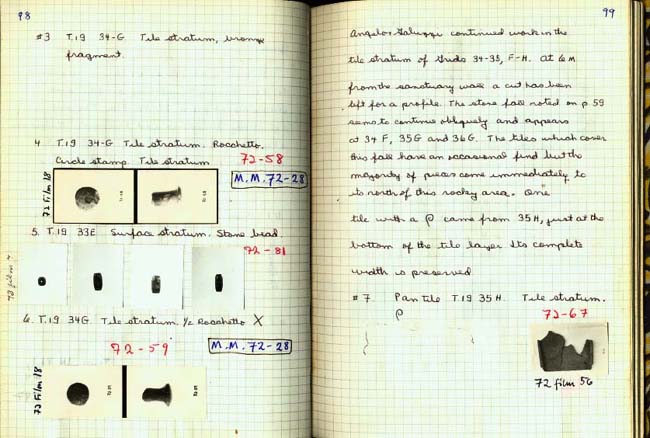 98
#3 T.19 34-G Tile stratum, bronze
fragment.
4. T.19 34-G Tile stratum. Rocchetto.
Circle stamp. Tile stratum
72-58
M.M. 72-28
72 Film 18
5. T.19 33E Surface stratum. Stone bead.
72-81
72 film 7
6. T.19 34G. Tile stratum. 1/2 Rocchetto X
72-59
M.M. 72-28
72 Film 18
99
Angelo + Galuzzi continued work in the
tile stratum of Grids 34-35, F-H. At 6 M
from the sanctuary wall a cut has been
left for a profile. The stone fall noted on p. 59
seems to continue obliquely and appears
at 34 F, 35G and 36G. The tiles which cover
this fall have an occasional find but the
majority of pieces come immediately to
its north of this rocky area. One
tile with a ρ came from 35H, just at the
bottom of the tile layer. Its complete
width is preserved
#7 Pan tile T.19 35H. Tile stratum.
ρ
72-67
72 film 56